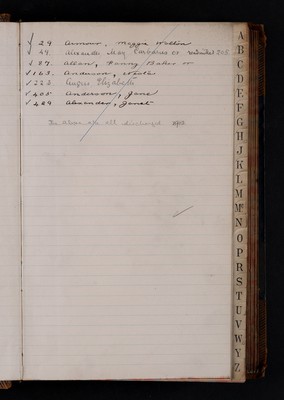 √ 29 Armour, Maggie Wilson
√ 49. Alexander May
√ 87. Allan, Fanny Baker or
√ 165. Anderson,
√ 223 Angus Elizabeth
√ 405 Anderson, Jane
√ 429 Alexander, Janet
The above are all discharged
A
B
C
D
E
F
G
H
J
K
L
M
Mc
N
O
P
R
S
T
U
V
W
Y
Z